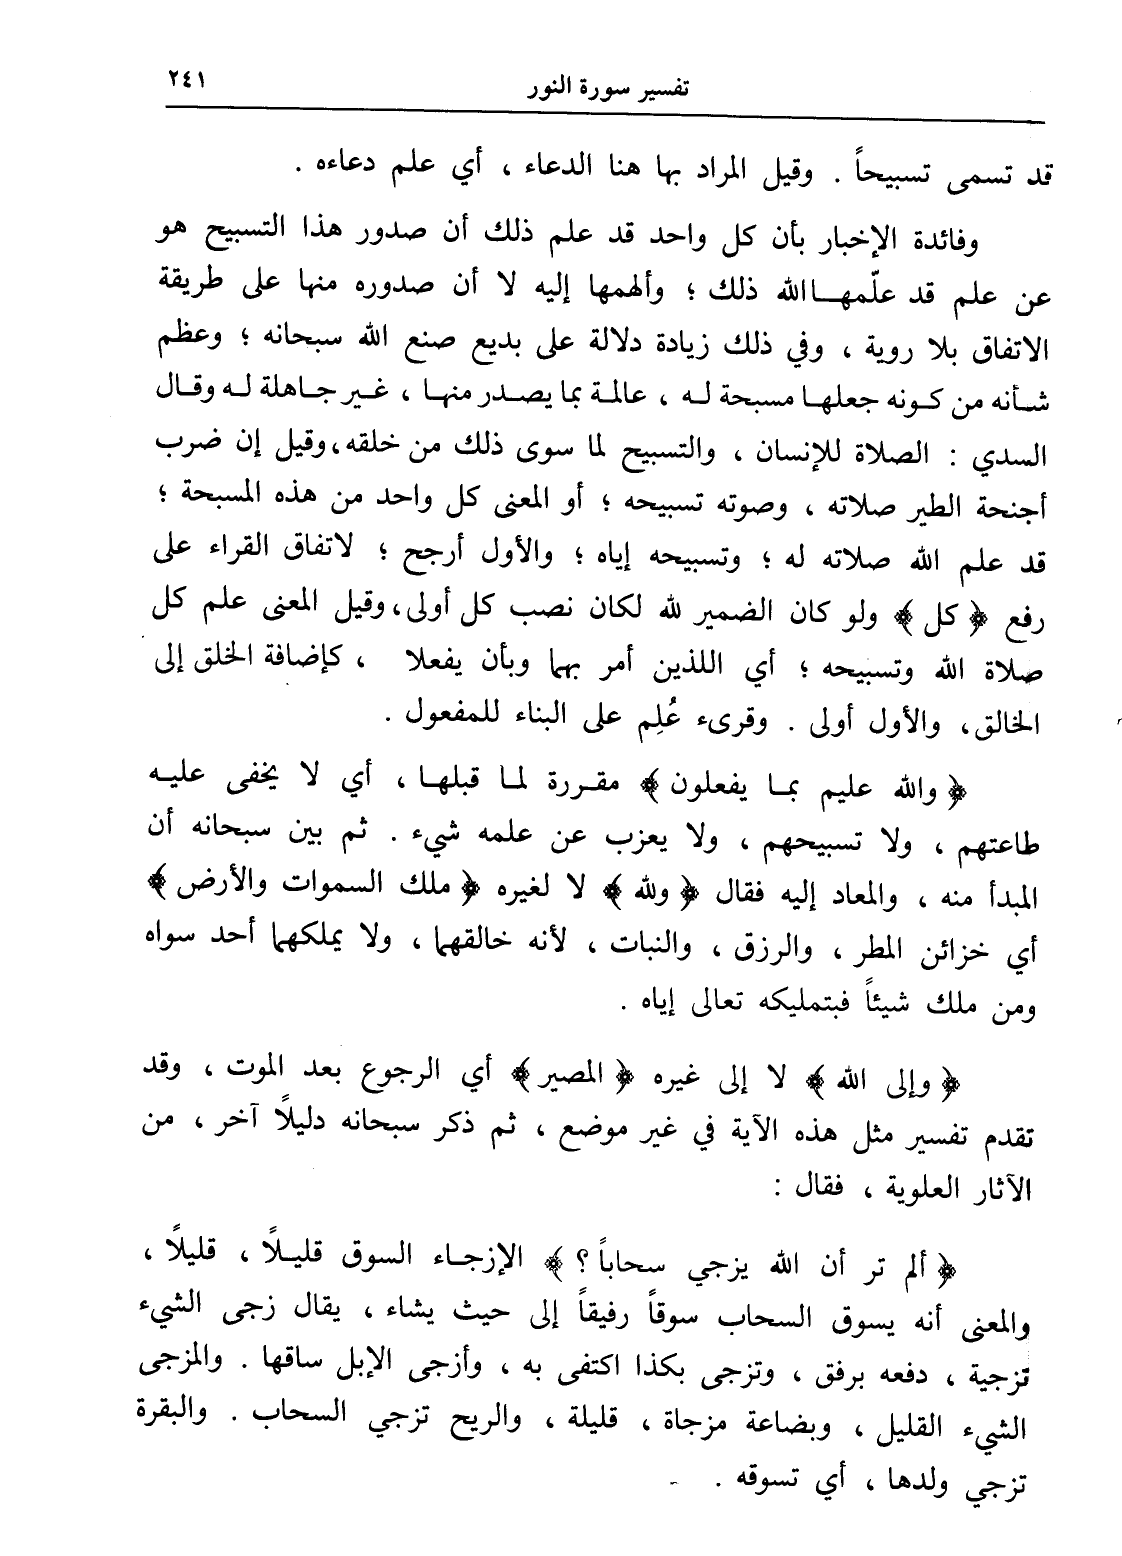 تفسير سورة النور ٢٤١
قد تسمى تسبيحاً . وقيل المراد بها هنا الدعاء ، أي علم دعاءه .
وفائدة الإخبار بأن كل واحد قد علم ذلك أن صدور هذا التسبيح هو
عن علم قد علّمها الله ذلك ؛ وألهمها إليه لا أن صدوره منها على طريقة
الاتفاق بلا روية ، وفي ذلك زيادة دلالة على بديع صنع الله سبحانه ؛ وعظم
شأنه من كونه جعلها مسبحة له ، عالمة بما يصدر منها ، غير جاهلة له وقال
السدي : الصلاة للإنسان ، والتسبيح لما سوى ذلك من خلقه، وقيل إن ضرب
أجنحة الطير صلاته ، وصوته تسبيحه ؛ أو المعنى كل واحد من هذه المسبحة ؛
قد علم الله صلاته له ؛ وتسبيحه إياه ؛ والأول أرجح ؛ لاتفاق القراء على
رفع ﴿ كل ﴾ ولو كان الضمير لله لكان نصب كل أولى، وقيل المعنى علم كل
صلاة الله وتسبيحه ؛ أي اللذين أمر بهما وبأن يفعلا ، كإضافة الخلق إلى
الخالق، والأول أولى . وقرىء عُلِم على البناء للمفعول .
﴿ والله عليم بما يفعلون ﴾ مقررة لما قبلها ، أي لا يخفى عليه
طاعتهم ، ولا تسبيحهم ، ولا يعزب عن علمه شيء . ثم بين سبحانه أن
المبدأ منه ، والمعاد إليه فقال ﴿ ولله ﴾ لا لغيره ﴿ ملك السموات والأرض ﴾
أي خزائن المطر ، والرزق ، والنبات ، لأنه خالقهما ، ولا يملكهما أحد سواه
ومن ملك شيئاً فبتمليكه تعالى إياه .
﴿ وإلى الله ﴾ لا إلى غيره ﴿ المصير ﴾ أي الرجوع بعد الموت ، وقد
تقدم تفسير مثل هذه الآية في غير موضع ، ثم ذكر سبحانه دليلاً آخر ، من
الآثار العلوية ، فقال :
﴿ ألم تر أن الله يزجي سحاباً ؟ ﴾ الإزجاء السوق قليلاً ، قليلاً ،
والمعنى أنه يسوق السحاب سوقاً رفيقاً إلى حيث يشاء ، يقال زجى الشيء
تزجية ، دفعه برفق ، وتزجى بكذا اكتفى به ، وأزجى الإبل ساقها . والمزجى
الشيء القليل ، وبضاعة مزجاة ، قليلة ، والريح تزجي السحاب . والبقرة
تزجي ولدها ، أي تسوقه .